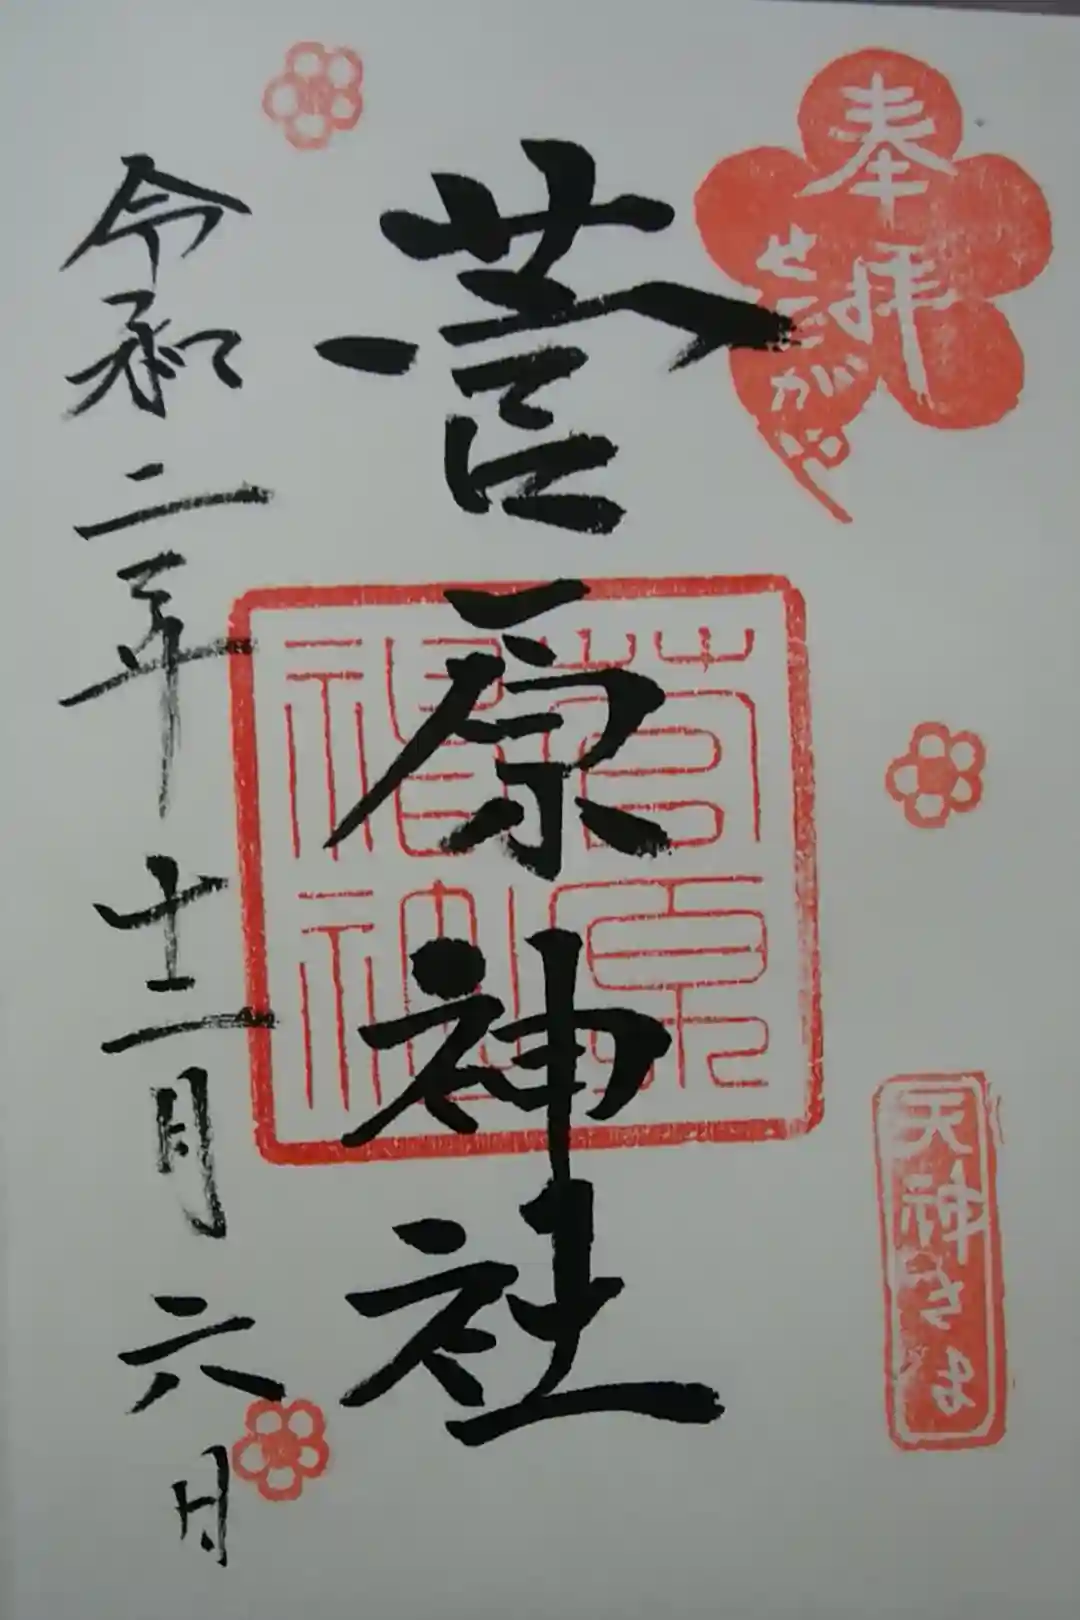 奉拝
せたがや
天神さま
菅原神社
菅原神社
令和二年十二月六日